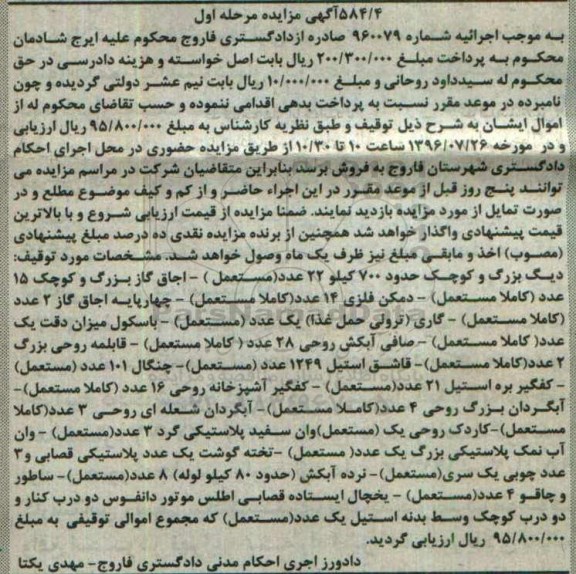 ۵۸۴/۴آگهی مزایده مرحله اول
به موجب اجرائیه شماره ۹۶۰۰۷۹ صادره ازدادگستری فاروج محکوم علیه ایرج شادمان
محکوم به پرداخت مبلغ ۲۰۰/۳۰۰/۰۰۰ ریال بابت اصل خواسته و هزینه دادرسی در حق
محکوم له سیدداود روحانی و مبلغ ۱۰/۰۰۰/۰۰۰ ریال بابت نیم عشر دولتی گردیده و چون
نامبرده در موعد مقرر نسبت به پرداخت بدهی اقدامی ننموده و حسب تقاضای محکوم له از
اموال ایشان به شرح ذیل توقیف و طبق نظریه کارشناس به مبلغ ۹۵/۸۰۰/۰۰۰ ریال ارزیابی
و در مورخه ۱۳۹۶/۰۷/۲۶ ساعت ۱۰ تا ۱۰/۳۰ از طریق مزایده حضوری در محل اجرای احکام
دادگستری شهرستان فاروج به فروش برسد بنابراین متقاضیان شرکت در مراسم مزایده می
توانند پنج روز قبل از موعد مقرر در این اجراء حاضر و از کم و کیف موضوع مطلع و در
صورت تمایل از مورد مزایده بازدید نمایند. ضمنا مزایده از قیمت ارزیابی شروع و با بالاترین
قیمت پیشنهادی واگذار خواهد شد همچنین از برنده مزایده نقدی ده درصد مبلغ پیشنهادی
(مصوب) اخذ و مابقی مبلغ نیز ظرف یک ماه وصول خواهد شد. مشخصات مورد توقیف:
دیگ بزرگ و کوچک حدود ۷۰۰ کیلو ۲۲ عدد(مستعمل ) - اجاق گاز بزرگ و کوچک ۱۵
عدد (کاملا مستعمل) - دمکن فلزی ۱۴ عدد(کاملا مستعمل) - چهارپایه اجاق گاز ۲ عدد
(کاملا مستعمل) - گاری (ترولی حمل غذا) یک عدد (مستعمل) - باسکول میزان دقت یک
عدد( کاملا مستعمل) -صافی آبکش روحی ۲۸ عدد ( کاملا مستعمل) - قابلمه روحی بزرگ
۲ عدد(کاملا مستعمل)- قاشق استیل ۱۲۴۹ عدد (مستعمل)- چنگال ۱۰۱ عدد (مستعمل)
- کفگیر بره استیل ۲۱ عدد(مستعمل)- کفگیر آشپزخانه روحی ۱۶ عدد (کاملا مستعمل)-
آبگردان بزرگ روحی ۴ عدد(کاملا مستعمل)- آبگردان شعله ای روحی ۳ عدد(کاملا
مستعمل)-کاردک روحی یک (مستعمل)وان سفید پلاستیکی گرد ۳ عدد(مستعمل) - وان
آب نمک پلاستیکی بزرگ یک عدد( مستعمل) -تخته گوشت یک عدد پلاستیکی قصابی و۳
عدد چوبی یک سری(مستعمل)- نرده آبکش (حدود ۸۰ کیلو لوله) ۸ عدد(مستعمل)- ساطور
و چاقو ۴ عدد(مستعمل) - یخچال ایستاده قصابی اطلس موتور دانفوس دو درب کنار و
دو درب کوچک وسط بدنه استیل یک عدد(مستعمل) که مجموع اموالی توقیفی به مبلغ
۹۵/۸۰۰/۰۰۰ ریال ارزیابی گردید.
دادورز اجری احکام مدنی دادگستری فاروج- مهدی یکتا